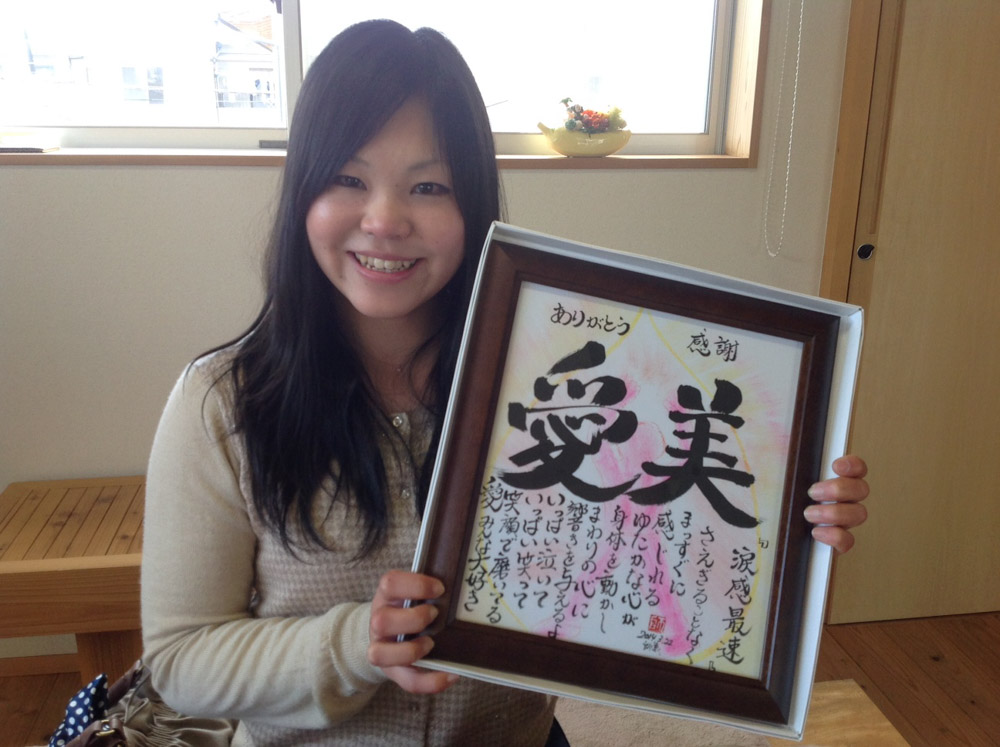 感謝
ありがとう
美愛
『涙感最速』
さえぎることなく
まっすぐに
感じれる
ゆたかな心が
身体を動かし
まわりの心に
響きを与えるよ
いっぱい泣いて
いっぱい笑って
笑顔で磨いてる
愛 みんな大好き